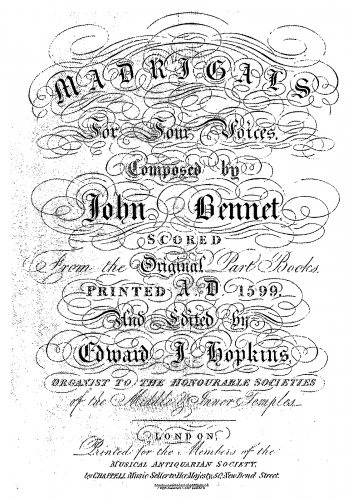 MADRIGALS
For Four Voices.
Composed by
John Bennet.
SCORED
From the Original Part Books,
PRINTED A.D 1599,
And Edited by
Edward J Hopkins,
ORGANIST TO THE HONOURABLE SOCIETIES
of the Middle & Inner Temples.
LONDON,
Printed for the Members of the
MUSICAL ANTIQUARIAN SOCIETY,
by CHAPPELL Music Seller to Her Majesty, 50, New Bond Street.